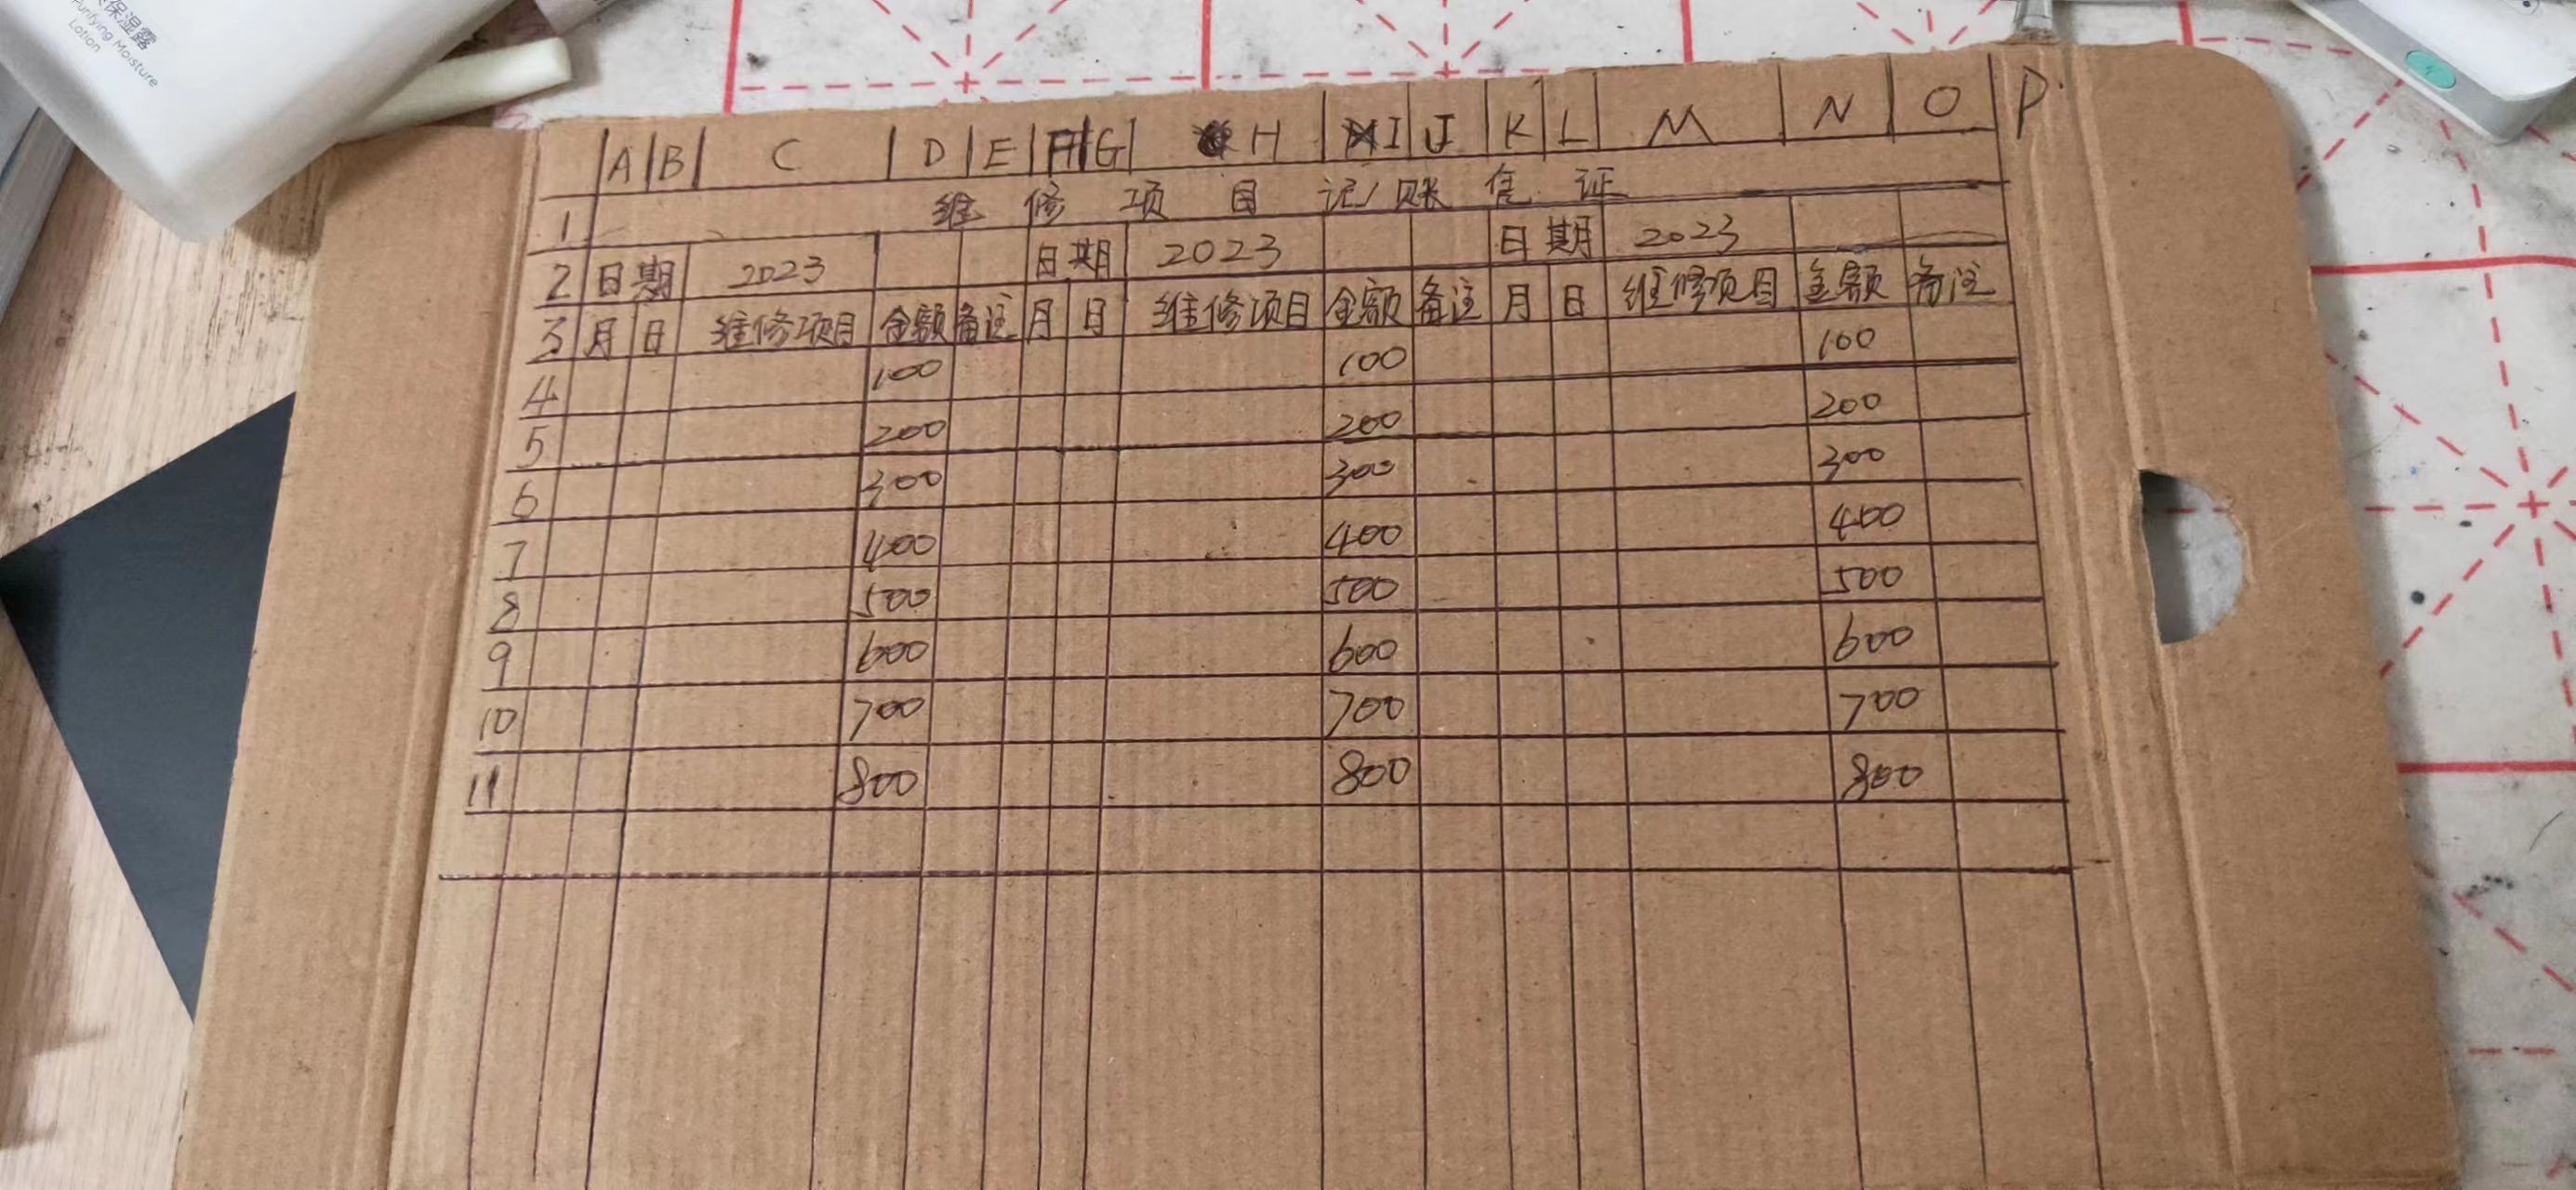 保湿露
Purifying Moisture
Lotion
A B C D E F G H I J K L M N O P
1 维修项目记账凭证
2 日期 2023 日期 2023 日期 2023
3 月 日 维修项目 金额 备注 月 日 维修项目 金额 备注 月 日 维修项目 金额 备注
4 100 100 100
5 200 200 200
6 300 300 300
7 400 400 400
8 500 500 500
9 600 600 600
10 700 700 700
11 800 800 800